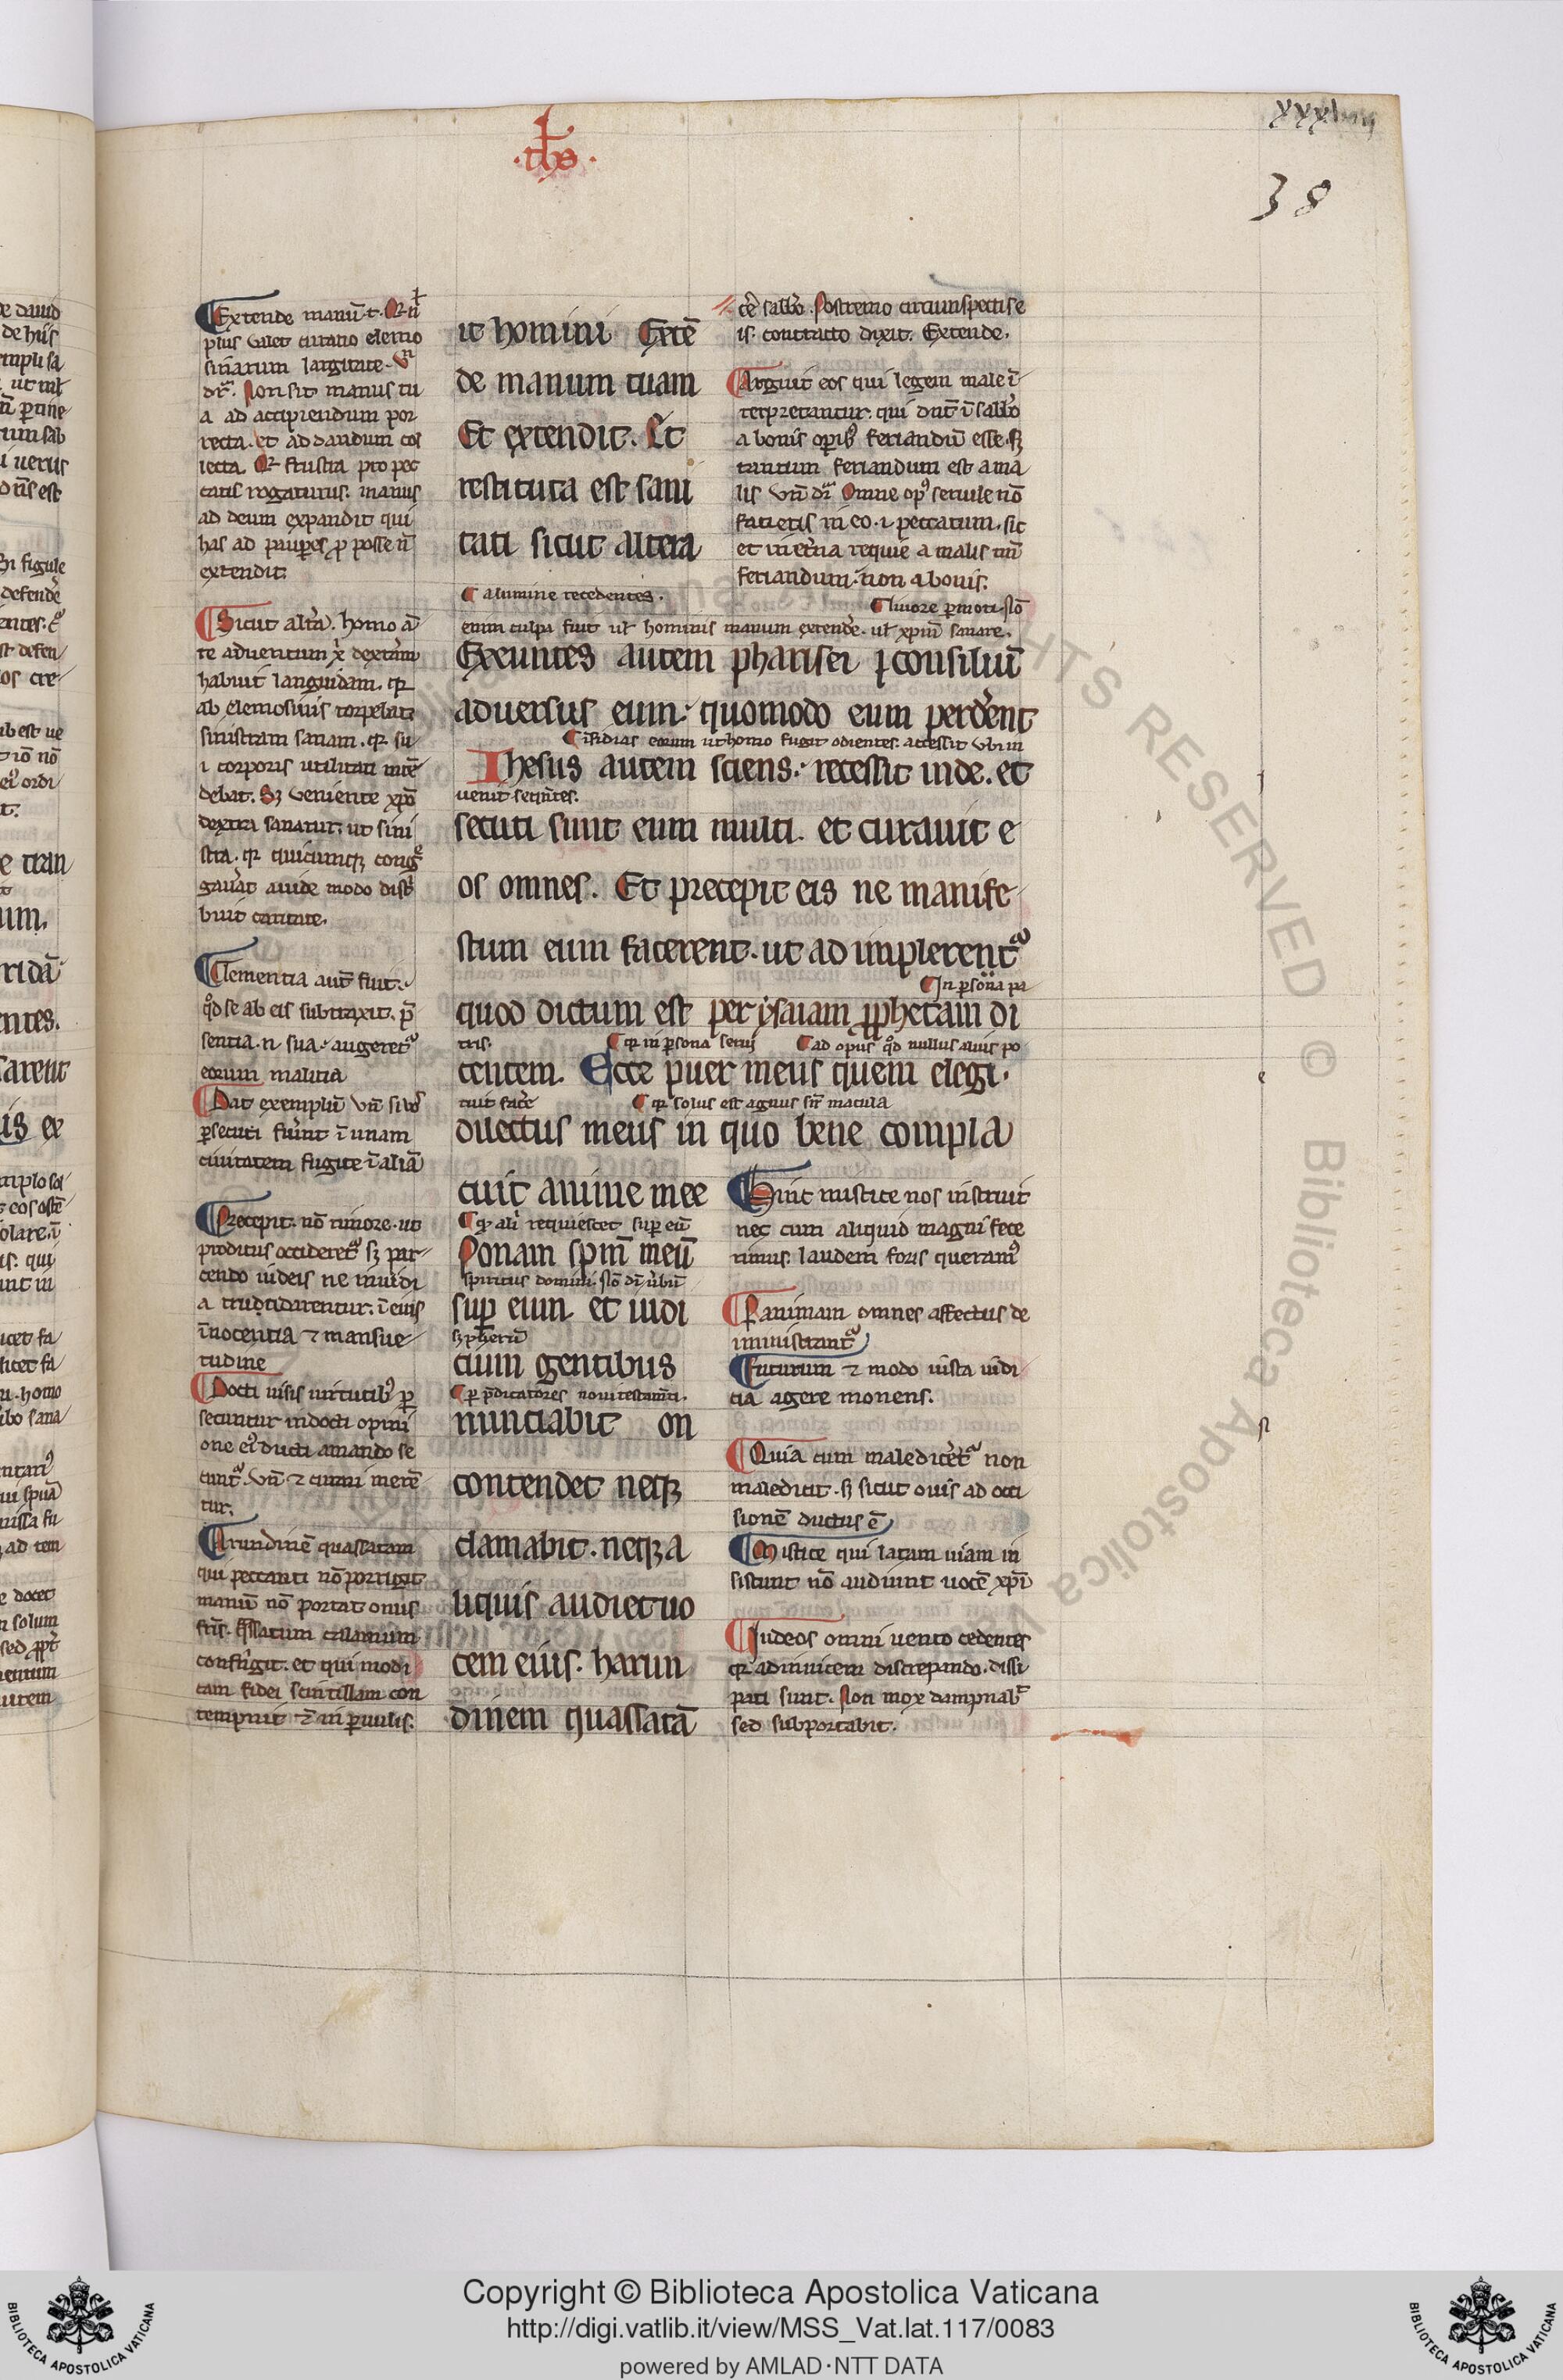 .ths.
38
Extende manū.t. Qr nl
plus valet curatio elemo
sinarum largitate. Vn̄
dr̄. Non sit manus tu
a ad accipiendum por
recta. et ad dandum col
lecta. Qr frustra pro pec
catis rogaturus. manus
ad deum expandit qui
has ad pauperes ꝓ posse n̄
extendit.
Sicut altͣa. homo an̄
te adventum xͥ dexteram
habuit languidam. qr
ab elemosinis torpebat
sinistram sanam. qr su
i corporis utilitati intē
debat. Sꝫ veniente xpō
dextra sanatur. ut sini
stra. qr quicumqꝫ cong̃
gav̄at auide modo distͥ
buit caritate.
Clementia aut̄ fuit.
q̊d se ab eis subtraxit. p̄
sentia. n̄ sua. augeretᷣ
eorum malitia
Dat exemplū. Vn̄ si vos
ꝑsecuti fuerint ī unam
civitatem fugite ī aliā
Precepit. nō timore. ut
proditus occideretᷣ sꝫ par
cendo iudeis ne invidi
a trucidarentur. ī eius
īnocentia ⁊ mansue
tudine
Docti visis virtutibꝰ ꝑ
secuntur indocti opini
one eiꝰ ducti amando se
cuntᷣ. Vn̄ ⁊ curari merē
tur.
Arundinē quassatam
qui peccanti nō porrigit
manū nō portat onus
frīs. Quassatum calamum
confringit. et qui modi
cam fidei scintillam con
tempnit ⁊ in ꝑvulis.
it homini Extē
de manum tuam
Et extendit. Et
restituta est sani
tati sicut altera
a lumine recedentes.
livore ꝑmoti. nō
enim culpa fuit ul̄ hominis manum extendere. ul̄ xpīm sanare.
Exeuntes autem pharisei ꝯsiliū
adversus eum. quomodo eum perderent
īsidias eorum ut homo fugit odientes. accessit ubi in
Ihesus autem sciens. recessit inde. et
venit sequentes.
secuti sunt eum multi. et curavit e
os omnes. Et precepit eis ne manife
stum eum facerent. ut adimplerentᷣ
In ꝑsona pa
quod dictum est per ysaiam ꝓphetam di
tris. qr in ꝑsona servi ad opus q̊d nullus avis po
centem. Ecce puer meus quem elegi.
tuit facere qr solus est agnus sn̄ macula
dilectus meus in quo bene compla
cuit anime mee
qr aliͥ requiescet super eū
Ponam spm̄ meū
spiritus domini.
suꝑ eum et iudi
cium gentibus
ꝑ p̄dicatores novi testam̄ti.
nunciabit on
contendet neqꝫ
clamabit. neqꝫ a
liquis audiet vo
cem eius. harun
dinem quassatā
cē sabb̄o. Postremo circumspectis e
is. contracto dixit. Extende.
Arguit eos qui legem male ī
terpretantur. qui dn̄t ī sabb̄o
a bonis operibꝰ feriandū esse. sꝫ
tantum feriandum est a ma
lis vn̄ dr̄. Omne opꝰ servile nō
facietis in eo. i. peccatum. sic
et in etͥna requie a malis tm̄
feriandum. non a bonis.
Hinc mistice nos instruit
nec cum aliquid magni fece
rimus. laudem foris queramꝰ
Per animam omnes affectus de
iministrantᷣ
Futurum ⁊ modo iusta iudi
cia agere monens.
Quia cum malediceretᷣ non
maledicit. sꝫ sicut ovis ad occi
sionē ductus ē
Mistice qui latam viam in
sistunt nō audiunt vocē xpī
Iudeos omni vento cedentes
qr adinvicem discrepando. dissi
pati sunt. Non mox dampnabͭ
sed subportabit.
Copyright © Biblioteca Apostolica Vaticana
http://digi.vatlib.it/view/MSS_Vat.lat.117/0083
powered by AMLAD·NTT DATA
BIBLIOTECA APOSTOLICA VATICANA
BIBLIOTECA APOSTOLICA VATICANA